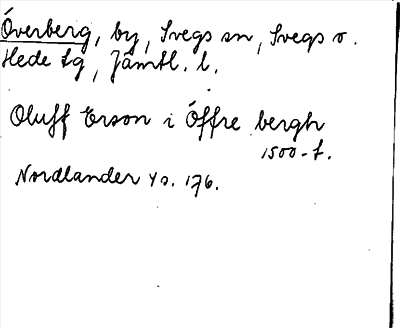 Överberg, by, Svegs sn, Svegs o.
Hede tg, Jämtl. l.
Oluff Erson i Öffre bergh
1500-t.
Nordlander s. 176.